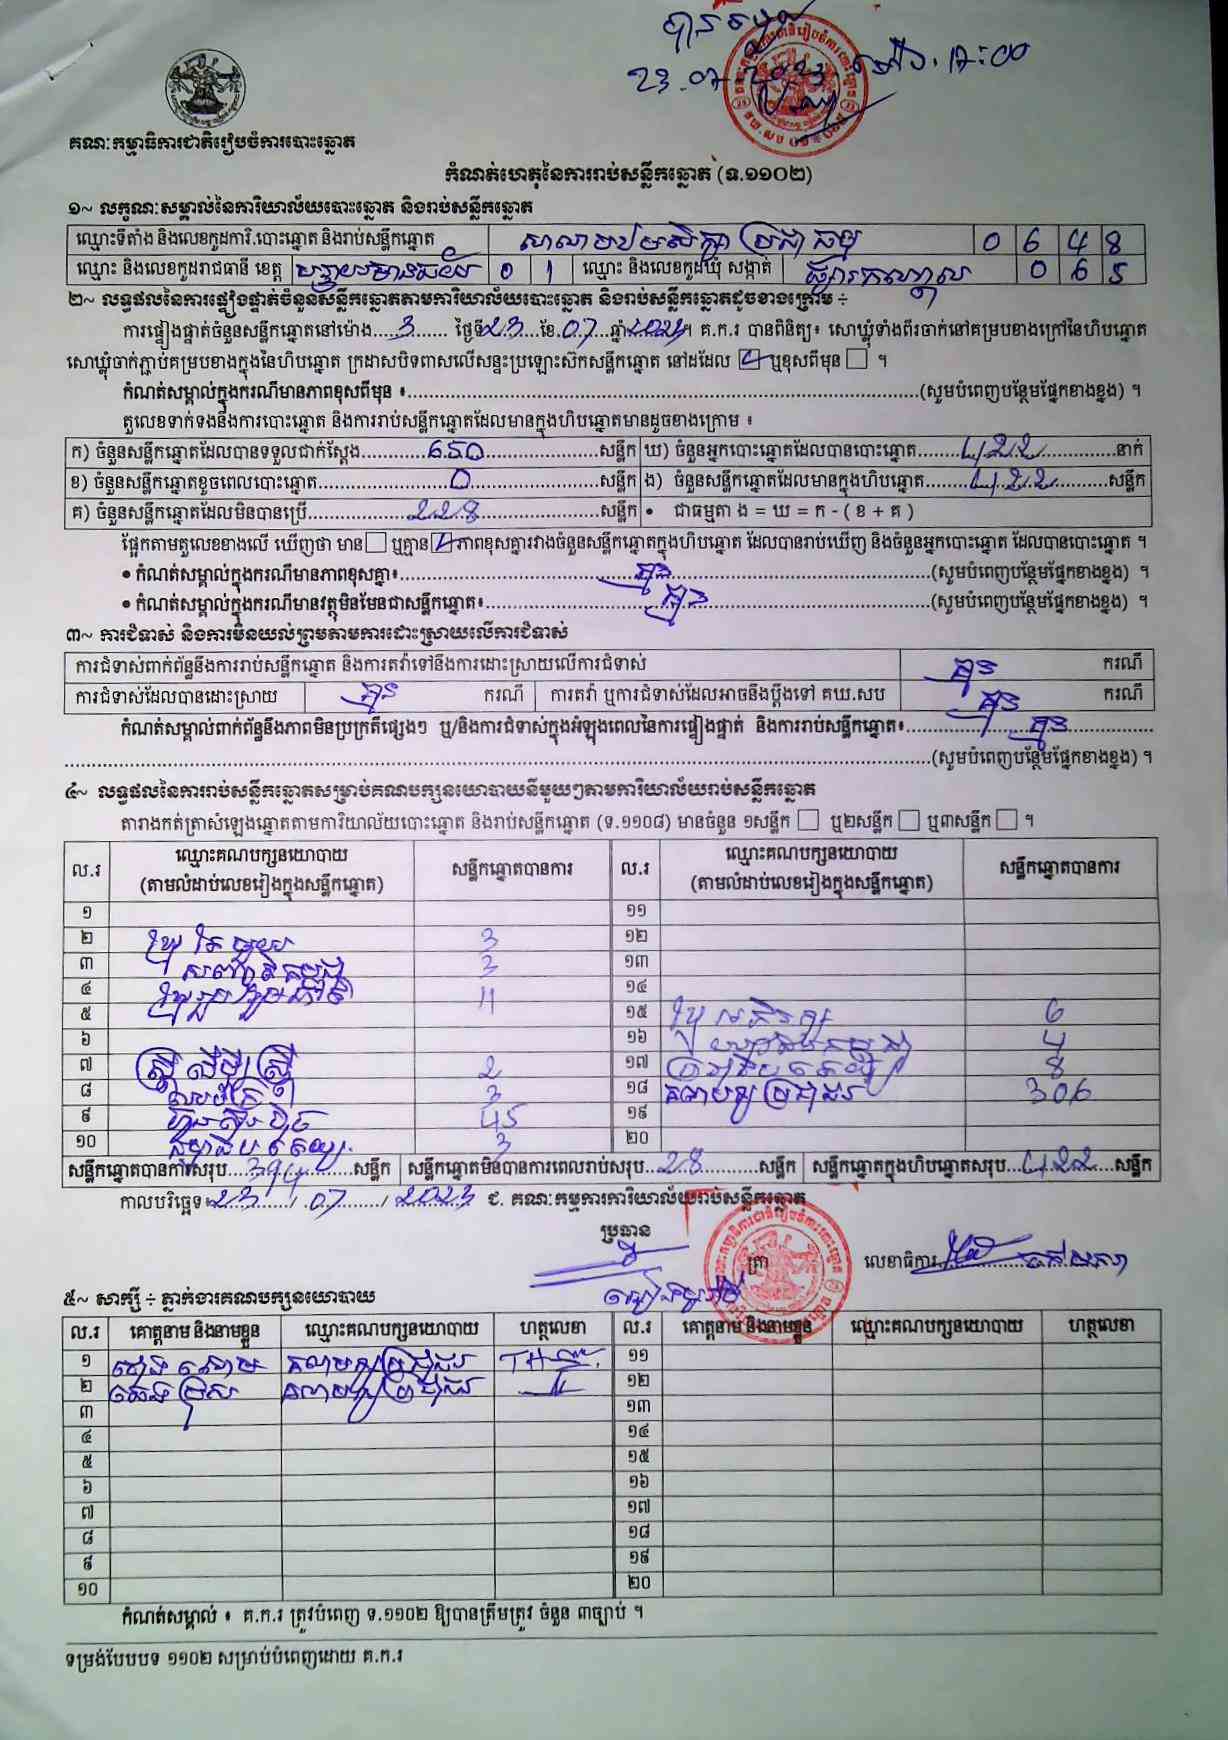 23.07.2023 ម៉ោង 17:00
គណៈកម្មាធិការជាតិរៀបចំការបោះឆ្នោត
កំណត់ហេតុនៃការរាប់សន្លឹកឆ្នោត (ទ.១១០២)
១~ លក្ខណៈសម្គាល់នៃការិយាល័យបោះឆ្នោត និងរាប់សន្លឹកឆ្នោត
ឈ្មោះទីតាំង និងលេខកូដការិ.បោះឆ្នោត និងរាប់សន្លឹកឆ្នោត សាលាបឋមសិក្សា ប្រជាធម្ម 0 6 4 8
ឈ្មោះ និងលេខកូដរាជធានី ខេត្ត បន្ទាយមានជ័យ 0 1 ឈ្មោះ និងលេខកូដឃុំ សង្កាត់ ផ្សារកណ្តាល 0 6 5
២~ លទ្ធផលនៃការផ្ទៀងផ្ទាត់ចំនួនសន្លឹកឆ្នោតតាមការិយាល័យបោះឆ្នោត និងរាប់សន្លឹកឆ្នោតដូចខាងក្រោម ÷
ការផ្ទៀងផ្ទាត់ចំនួនសន្លឹកឆ្នោតនៅម៉ោង....3...... ថ្ងៃទី23..ខែ.07...ឆ្នាំ.2023។ គ.ក.រ បានពិនិត្យ៖ សោឃ្លុំទាំងពីរចាក់នៅគម្របខាងក្រៅនៃហិបឆ្នោត
សោឃ្លុំចាក់ភ្ជាប់គម្របខាងក្នុងនៃហិបឆ្នោត ក្រដាសបិទពាសលើសន្ទះប្រឡោះស៊កសន្លឹកឆ្នោត នៅដដែល ☑ ឬខុសពីមុន ☐ ។
កំណត់សម្គាល់ក្នុងករណីមានភាពខុសពីមុន ៖...........(សូមបំពេញបន្ថែមផ្នែកខាងខ្នង) ។
តួលេខទាក់ទងនឹងការបោះឆ្នោត និងការរាប់សន្លឹកឆ្នោតដែលមានក្នុងហិបឆ្នោតមានដូចខាងក្រោម ៖
ក) ចំនួនសន្លឹកឆ្នោតដែលបានទទួលជាក់ស្តែង...........650...........សន្លឹក ឃ) ចំនួនអ្នកបោះឆ្នោតដែលបានបោះឆ្នោត.......422...........នាក់
ខ) ចំនួនសន្លឹកឆ្នោតខូចពេលបោះឆ្នោត...........0...........សន្លឹក ង) ចំនួនសន្លឹកឆ្នោតដែលមានក្នុងហិបឆ្នោត........422...........សន្លឹក
គ) ចំនួនសន្លឹកឆ្នោតដែលមិនបានប្រើ...........228...........សន្លឹក • ជាធម្មតា ង = ឃ = ក - ( ខ + គ )
ផ្អែកតាមតួលេខខាងលើ ឃើញថា មាន ☐ ឬគ្មាន ☑ ភាពខុសគ្នារវាងចំនួនសន្លឹកឆ្នោតក្នុងហិបឆ្នោត ដែលបានរាប់ឃើញ និងចំនួនអ្នកបោះឆ្នោត ដែលបានបោះឆ្នោត ។
• កំណត់សម្គាល់ក្នុងករណីមានភាពខុសគ្នា៖...........គ្មាន...........(សូមបំពេញបន្ថែមផ្នែកខាងខ្នង) ។
• កំណត់សម្គាល់ក្នុងករណីមានវត្ថុមិនមែនជាសន្លឹកឆ្នោត៖...........គ្មាន...........(សូមបំពេញបន្ថែមផ្នែកខាងខ្នង) ។
៣~ ការជំទាស់ និងការមិនយល់ព្រមតាមការដោះស្រាយលើការជំទាស់
ការជំទាស់ពាក់ព័ន្ធនឹងការរាប់សន្លឹកឆ្នោត និងការតវ៉ាទៅនឹងការដោះស្រាយលើការជំទាស់ គ្មាន ករណី
ការជំទាស់ដែលបានដោះស្រាយ គ្មាន ករណី ការតវ៉ា ឬការជំទាស់ដែលអាចនឹងប្តឹងទៅ គឃ.សប គ្មាន ករណី
កំណត់សម្គាល់ពាក់ព័ន្ធនឹងភាពមិនប្រក្រតីផ្សេងៗ ឬ/និងការជំទាស់ក្នុងអំឡុងពេលនៃការផ្ទៀងផ្ទាត់ និងការរាប់សន្លឹកឆ្នោត៖...........គ្មាន...........
...........(សូមបំពេញបន្ថែមផ្នែកខាងខ្នង) ។
៤~ លទ្ធផលនៃការរាប់សន្លឹកឆ្នោតសម្រាប់គណបក្សនយោបាយនីមួយៗតាមការិយាល័យរាប់សន្លឹកឆ្នោត
តារាងកត់ត្រាសំឡេងឆ្នោតតាមការិយាល័យបោះឆ្នោត និងរាប់សន្លឹកឆ្នោត (ទ.១១០៨) មានចំនួន ១សន្លឹក ☐ ឬ២សន្លឹក ☐ ឬ៣សន្លឹក ☐ ។
ល.រ ឈ្មោះគណបក្សនយោបាយ (តាមលំដាប់លេខរៀងក្នុងសន្លឹកឆ្នោត) សន្លឹកឆ្នោតបានការ ល.រ ឈ្មោះគណបក្សនយោបាយ (តាមលំដាប់លេខរៀងក្នុងសន្លឹកឆ្នោត) សន្លឹកឆ្នោតបានការ
១ ១១
២ 3 ១២
៣ 3 ១៣
៤ 11 ១៤
៥ ១៥ 6
៦ ១៦ 4
៧ 2 ១៧ 8
៨ 3 ១៨ គណបក្សប្រជាជន 306
៩ ហ៊្វុនស៊ិនប៉ិច 45 ១៩
១០ 3 ២០
សន្លឹកឆ្នោតបានការសរុប...394...........សន្លឹក សន្លឹកឆ្នោតមិនបានការពេលរាប់សរុប...28...........សន្លឹក សន្លឹកឆ្នោតក្នុងហិបឆ្នោតសរុប...422...សន្លឹក
កាលបរិច្ឆេទ៖23........./.07........./.2023 ជ. គណៈកម្មការការិយាល័យរាប់សន្លឹកឆ្នោត
ប្រធាន
ត្រា
លេខាធិការ
៥~ សាក្សី ÷ ភ្នាក់ងារគណបក្សនយោបាយ
ល.រ គោត្តនាម និងនាមខ្លួន ឈ្មោះគណបក្សនយោបាយ ហត្ថលេខា ល.រ គោត្តនាម និងនាមខ្លួន ឈ្មោះគណបក្សនយោបាយ ហត្ថលេខា
១ គណបក្សប្រជាជន ១១
២ គណបក្សប្រជាជន ១២
៣ ១៣
៤ ១៤
៥ ១៥
៦ ១៦
៧ ១៧
៨ ១៨
៩ ១៩
១០ ២០
កំណត់សម្គាល់ ៖ គ.ក.រ ត្រូវបំពេញ ទ.១១០២ ឱ្យបានត្រឹមត្រូវ ចំនួន ៣ច្បាប់ ។
ទម្រង់បែបបទ ១១០២ សម្រាប់បំពេញដោយ គ.ក.រ